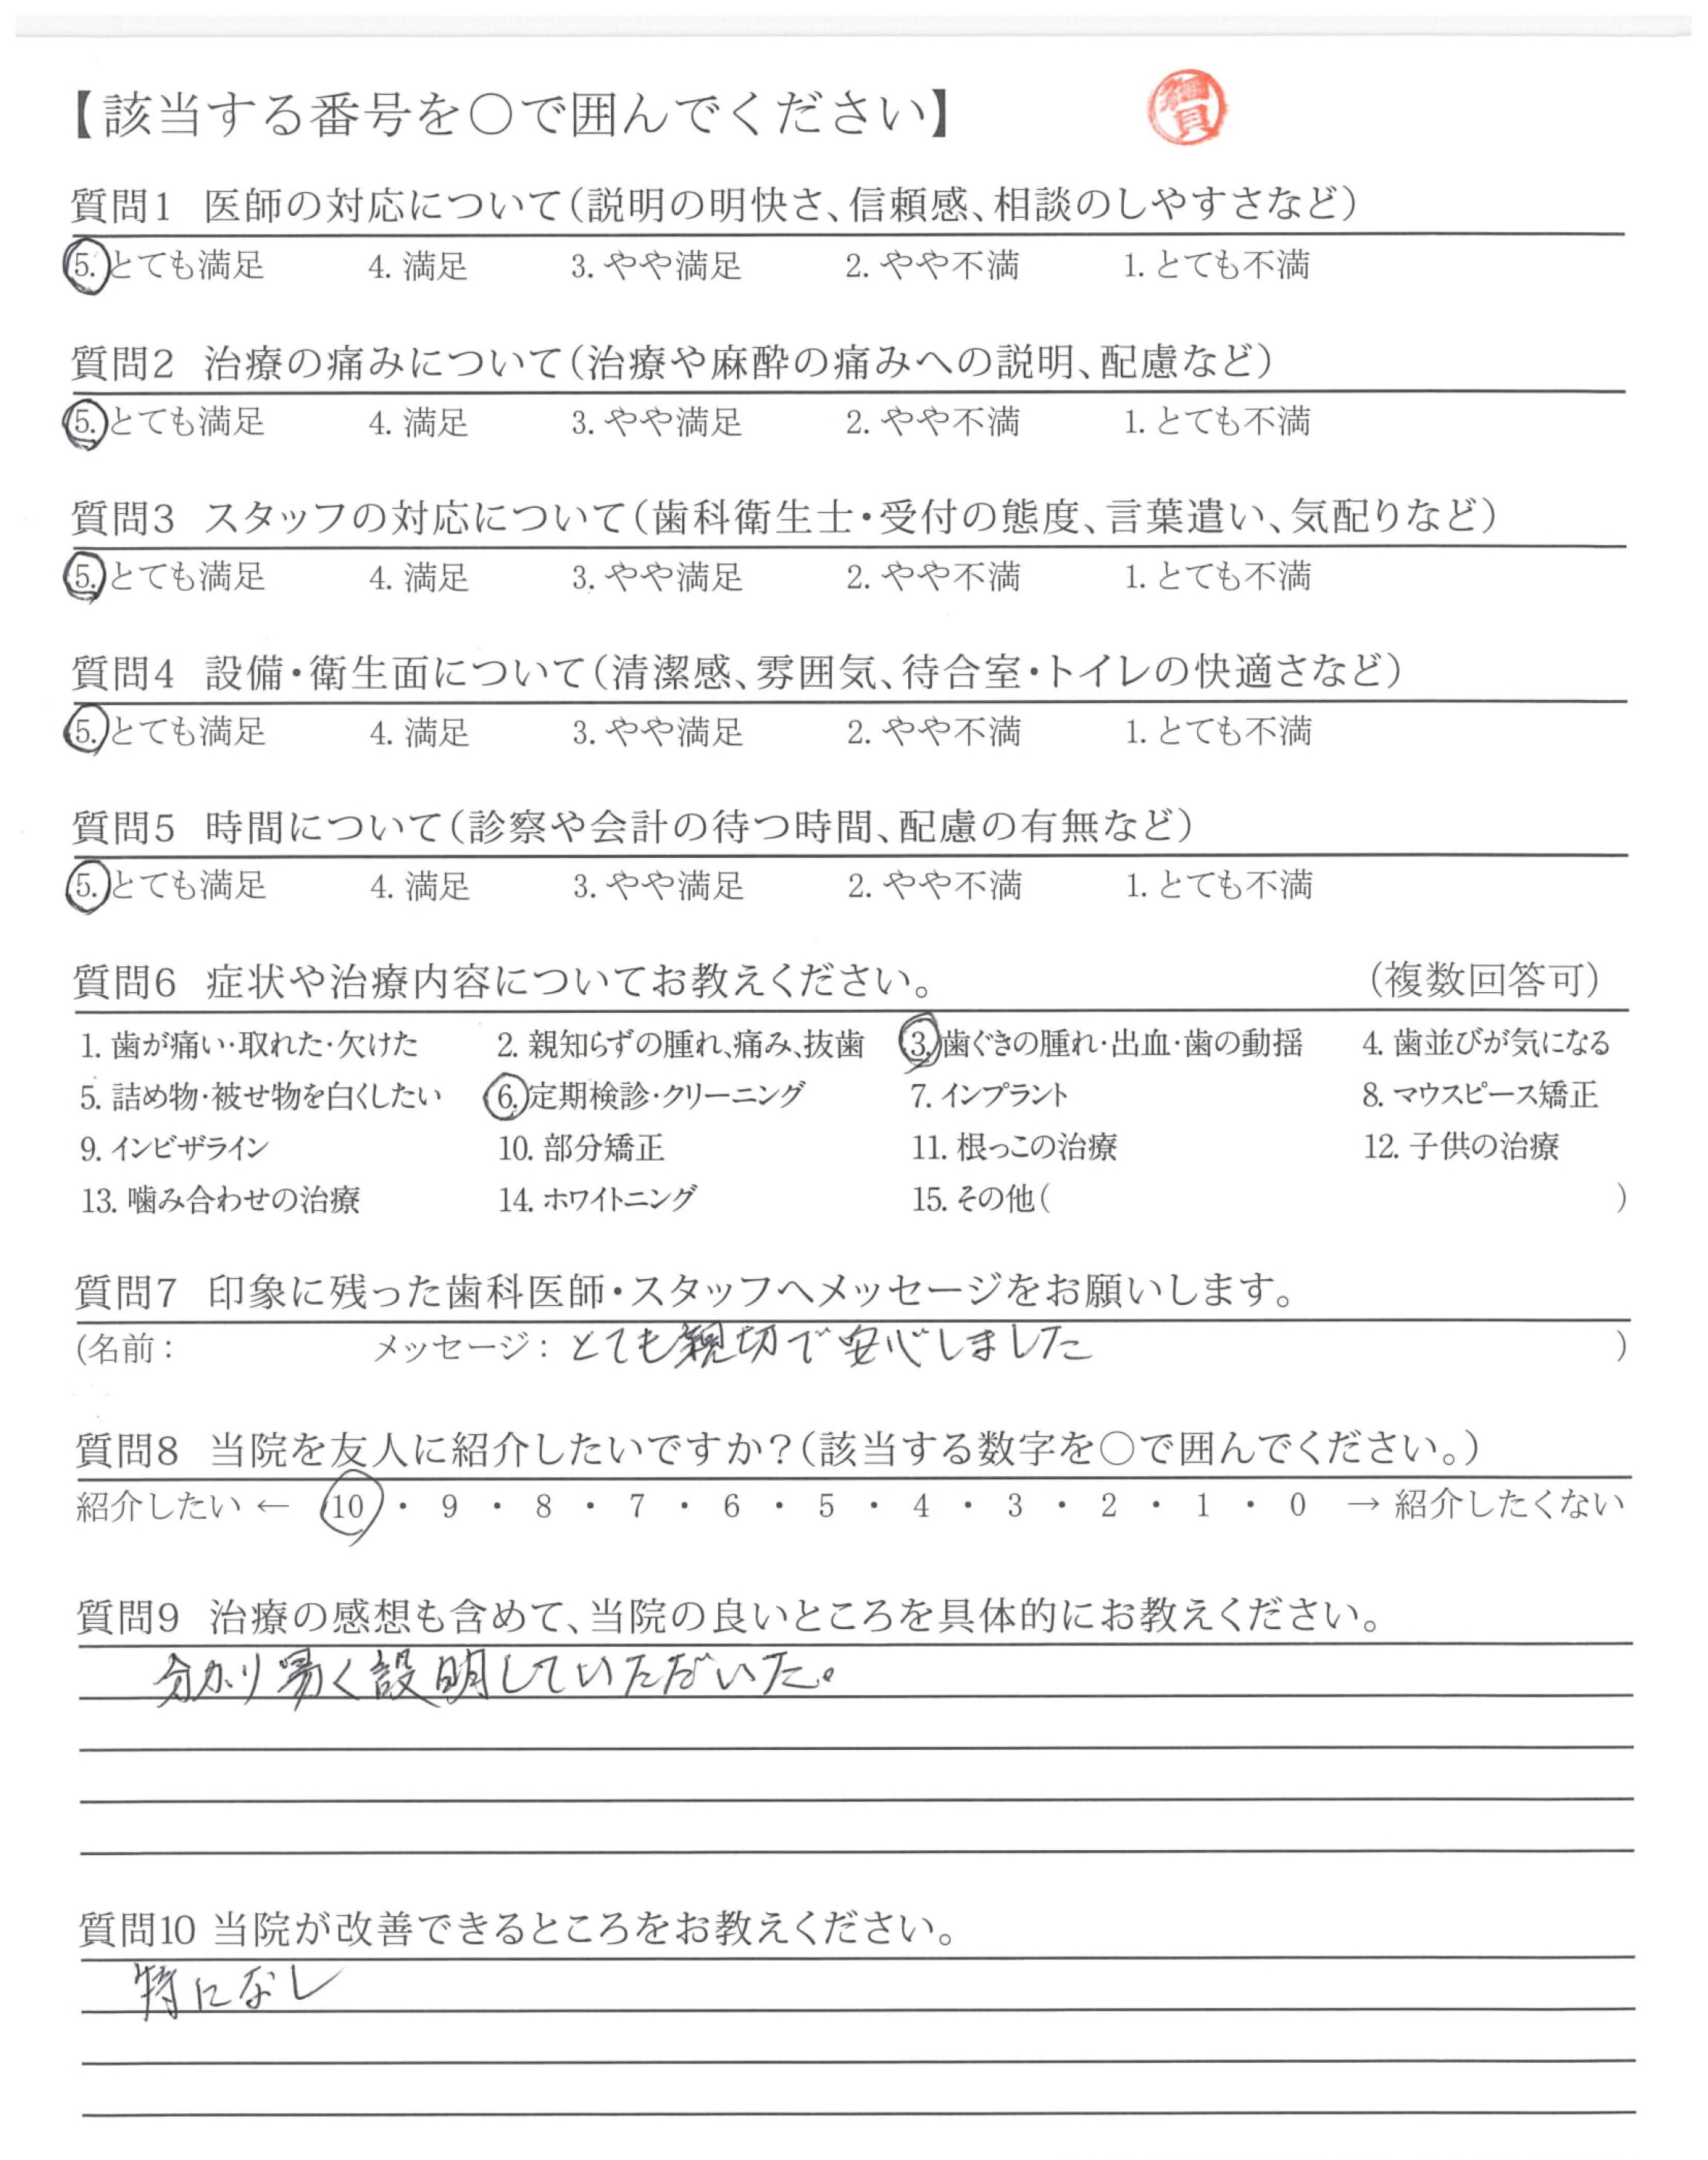 【該当する番号を○で囲んでください】
質問1 医師の対応について(説明の明快さ、信頼感、相談のしやすさなど)
5. とても満足 4. 満足 3. やや満足 2. やや不満 1. とても不満
質問2 治療の痛みについて(治療や麻酔の痛みへの説明、配慮など)
5. とても満足 4. 満足 3. やや満足 2. やや不満 1. とても不満
質問3 スタッフの対応について(歯科衛生士・受付の態度、言葉遣い、気配りなど)
5. とても満足 4. 満足 3. やや満足 2. やや不満 1. とても不満
質問4 設備・衛生面について(清潔感、雰囲気、待合室・トイレの快適さなど)
5. とても満足 4. 満足 3. やや満足 2. やや不満 1. とても不満
質問5 時間について(診察や会計の待つ時間、配慮の有無など)
5. とても満足 4. 満足 3. やや満足 2. やや不満 1. とても不満
質問6 症状や治療内容についてお教えください。 (複数回答可)
1. 歯が痛い・取れた・欠けた 2. 親知らずの腫れ、痛み、抜歯 3. 歯ぐきの腫れ・出血・歯の動揺 4. 歯並びが気になる
5. 詰め物・被せ物を白くしたい 6. 定期検診・クリーニング 7. インプラント 8. マウスピース矯正
9. インビザライン 10. 部分矯正 11. 根っこの治療 12. 子供の治療
13. 噛み合わせの治療 14. ホワイトニング 15. その他( )
質問7 印象に残った歯科医師・スタッフへメッセージをお願いします。
(名前: メッセージ: とても親切で安心しました )
質問8 当院を友人に紹介したいですか?(該当する数字を○で囲んでください。)
紹介したい ← 10 ・ 9 ・ 8 ・ 7 ・ 6 ・ 5 ・ 4 ・ 3 ・ 2 ・ 1 ・ 0 → 紹介したくない
質問9 治療の感想も含めて、当院の良いところを具体的にお教えください。
分かり易く説明していただいた。
質問10 当院が改善できるところをお教えください。
特になし